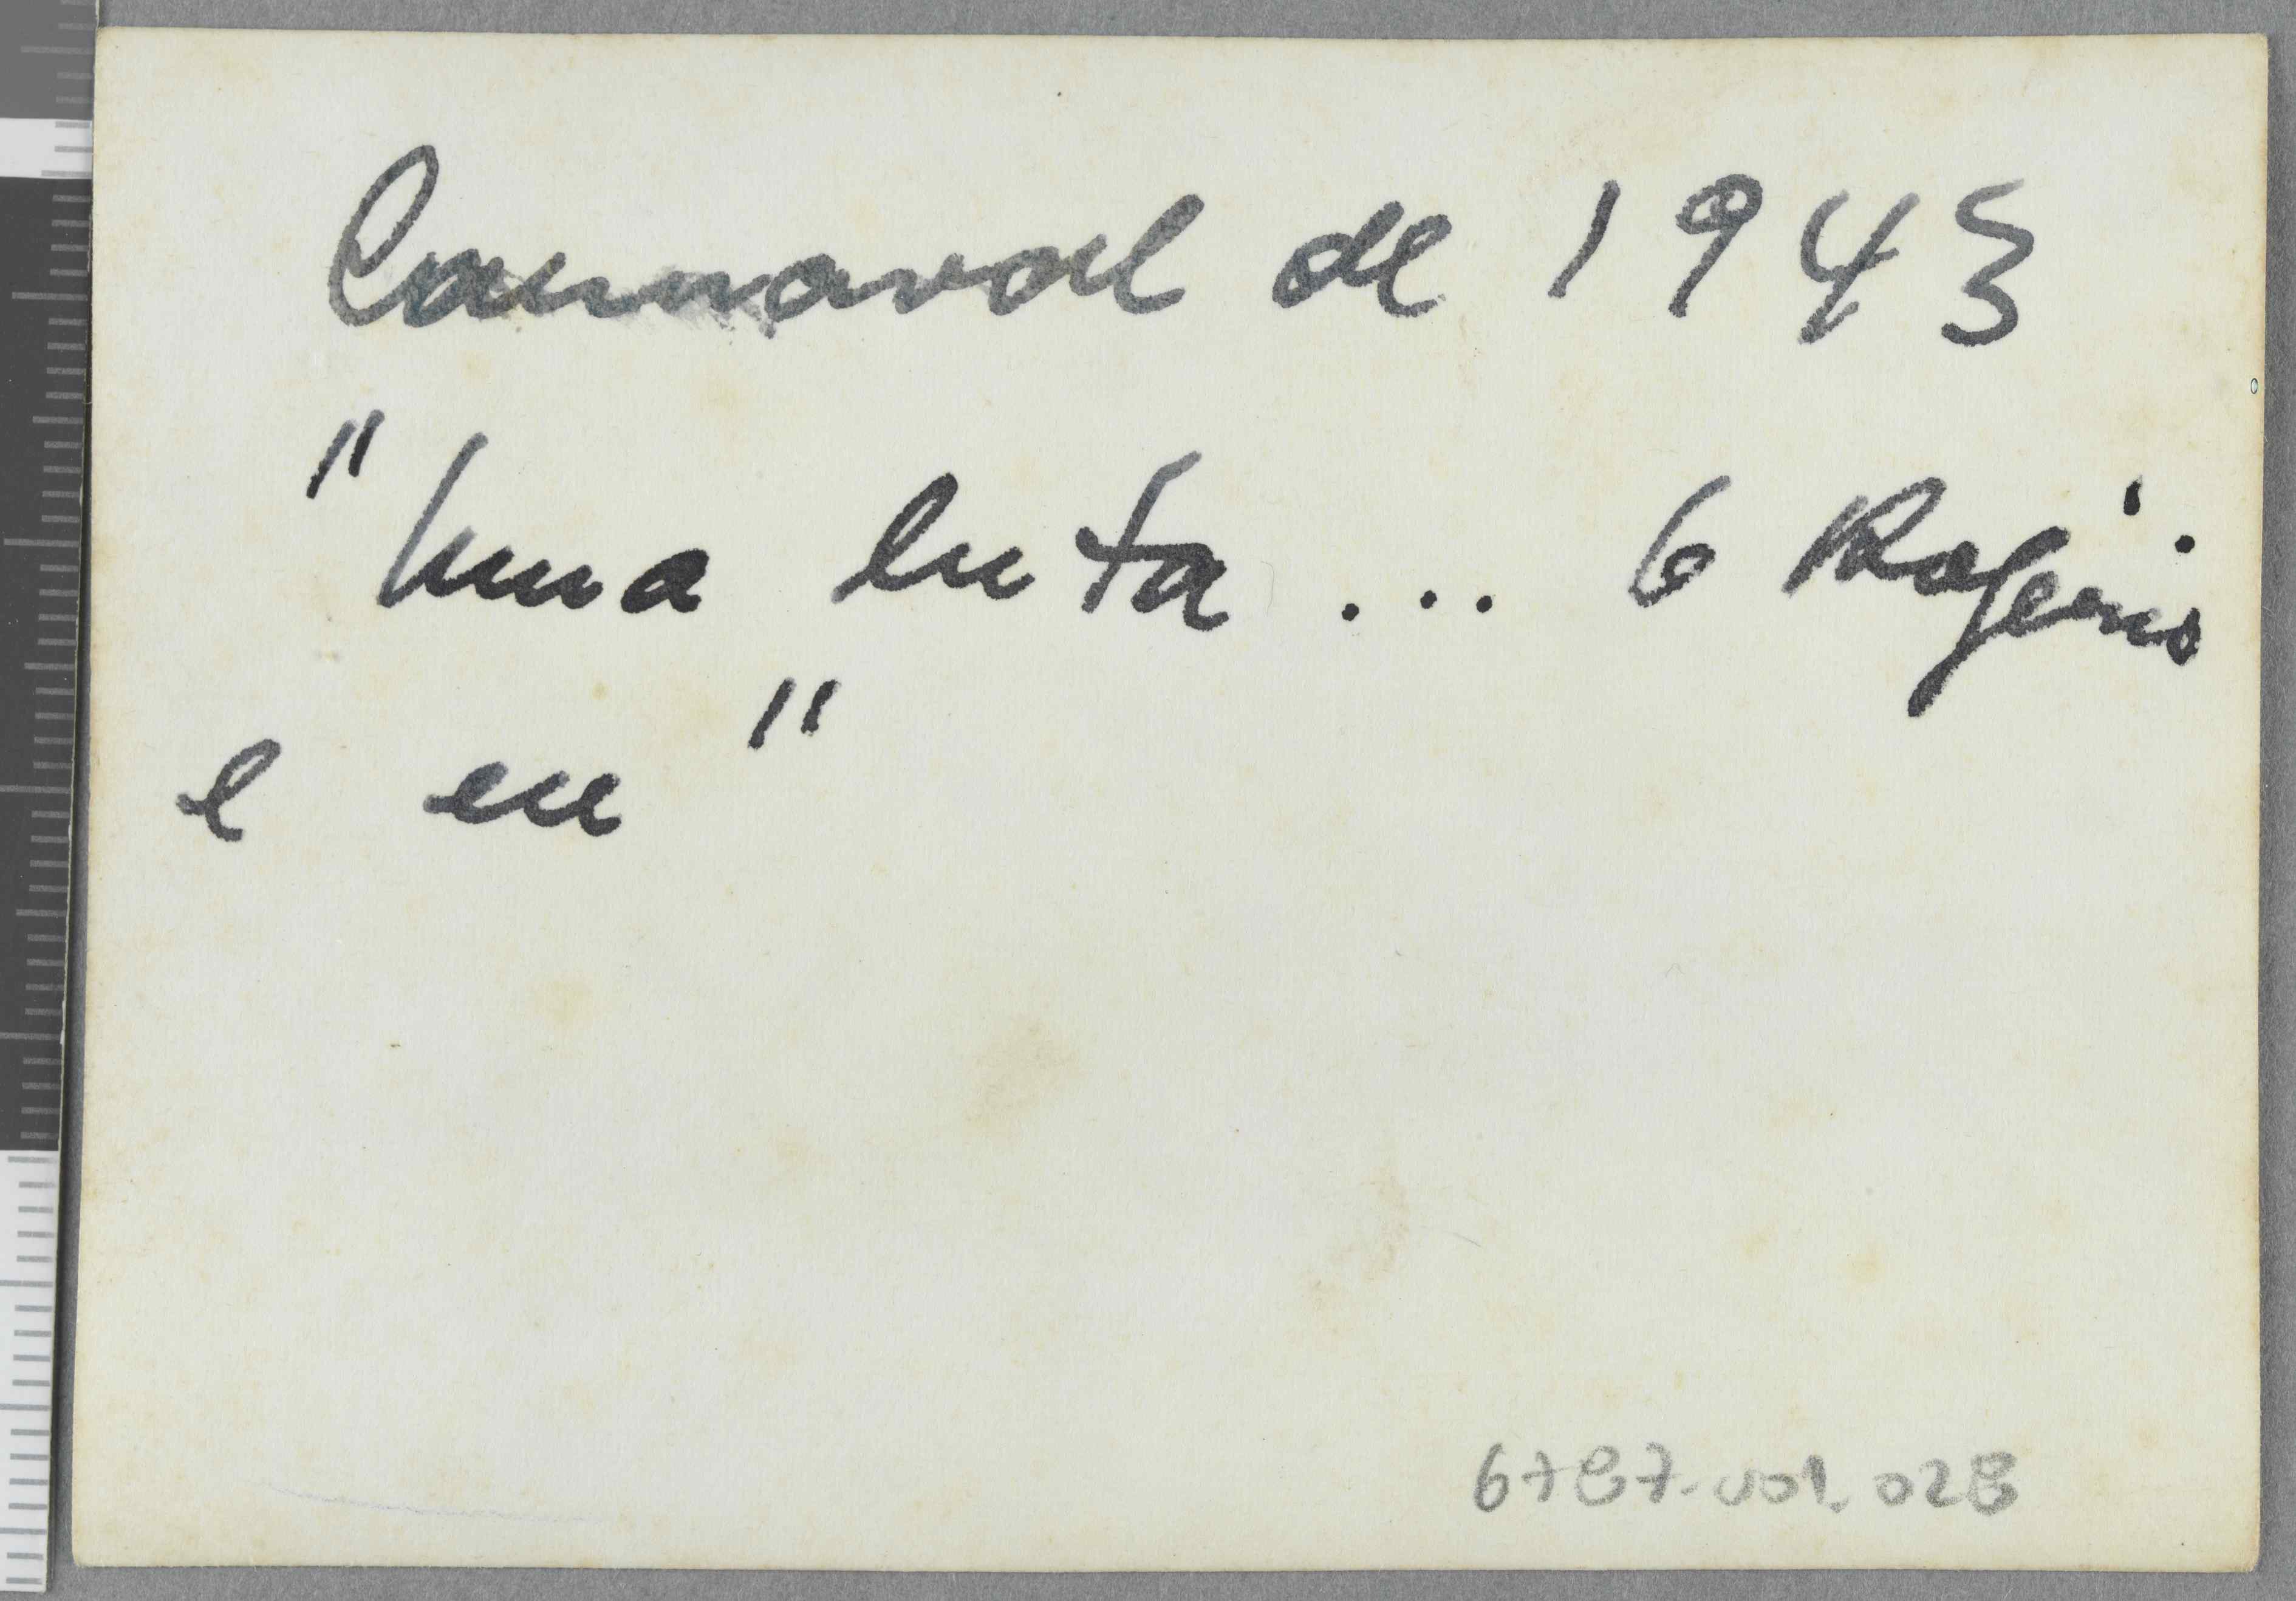 Carnaval de 1943
"Uma luta ... o Rogério
e eu"
6787-001.028